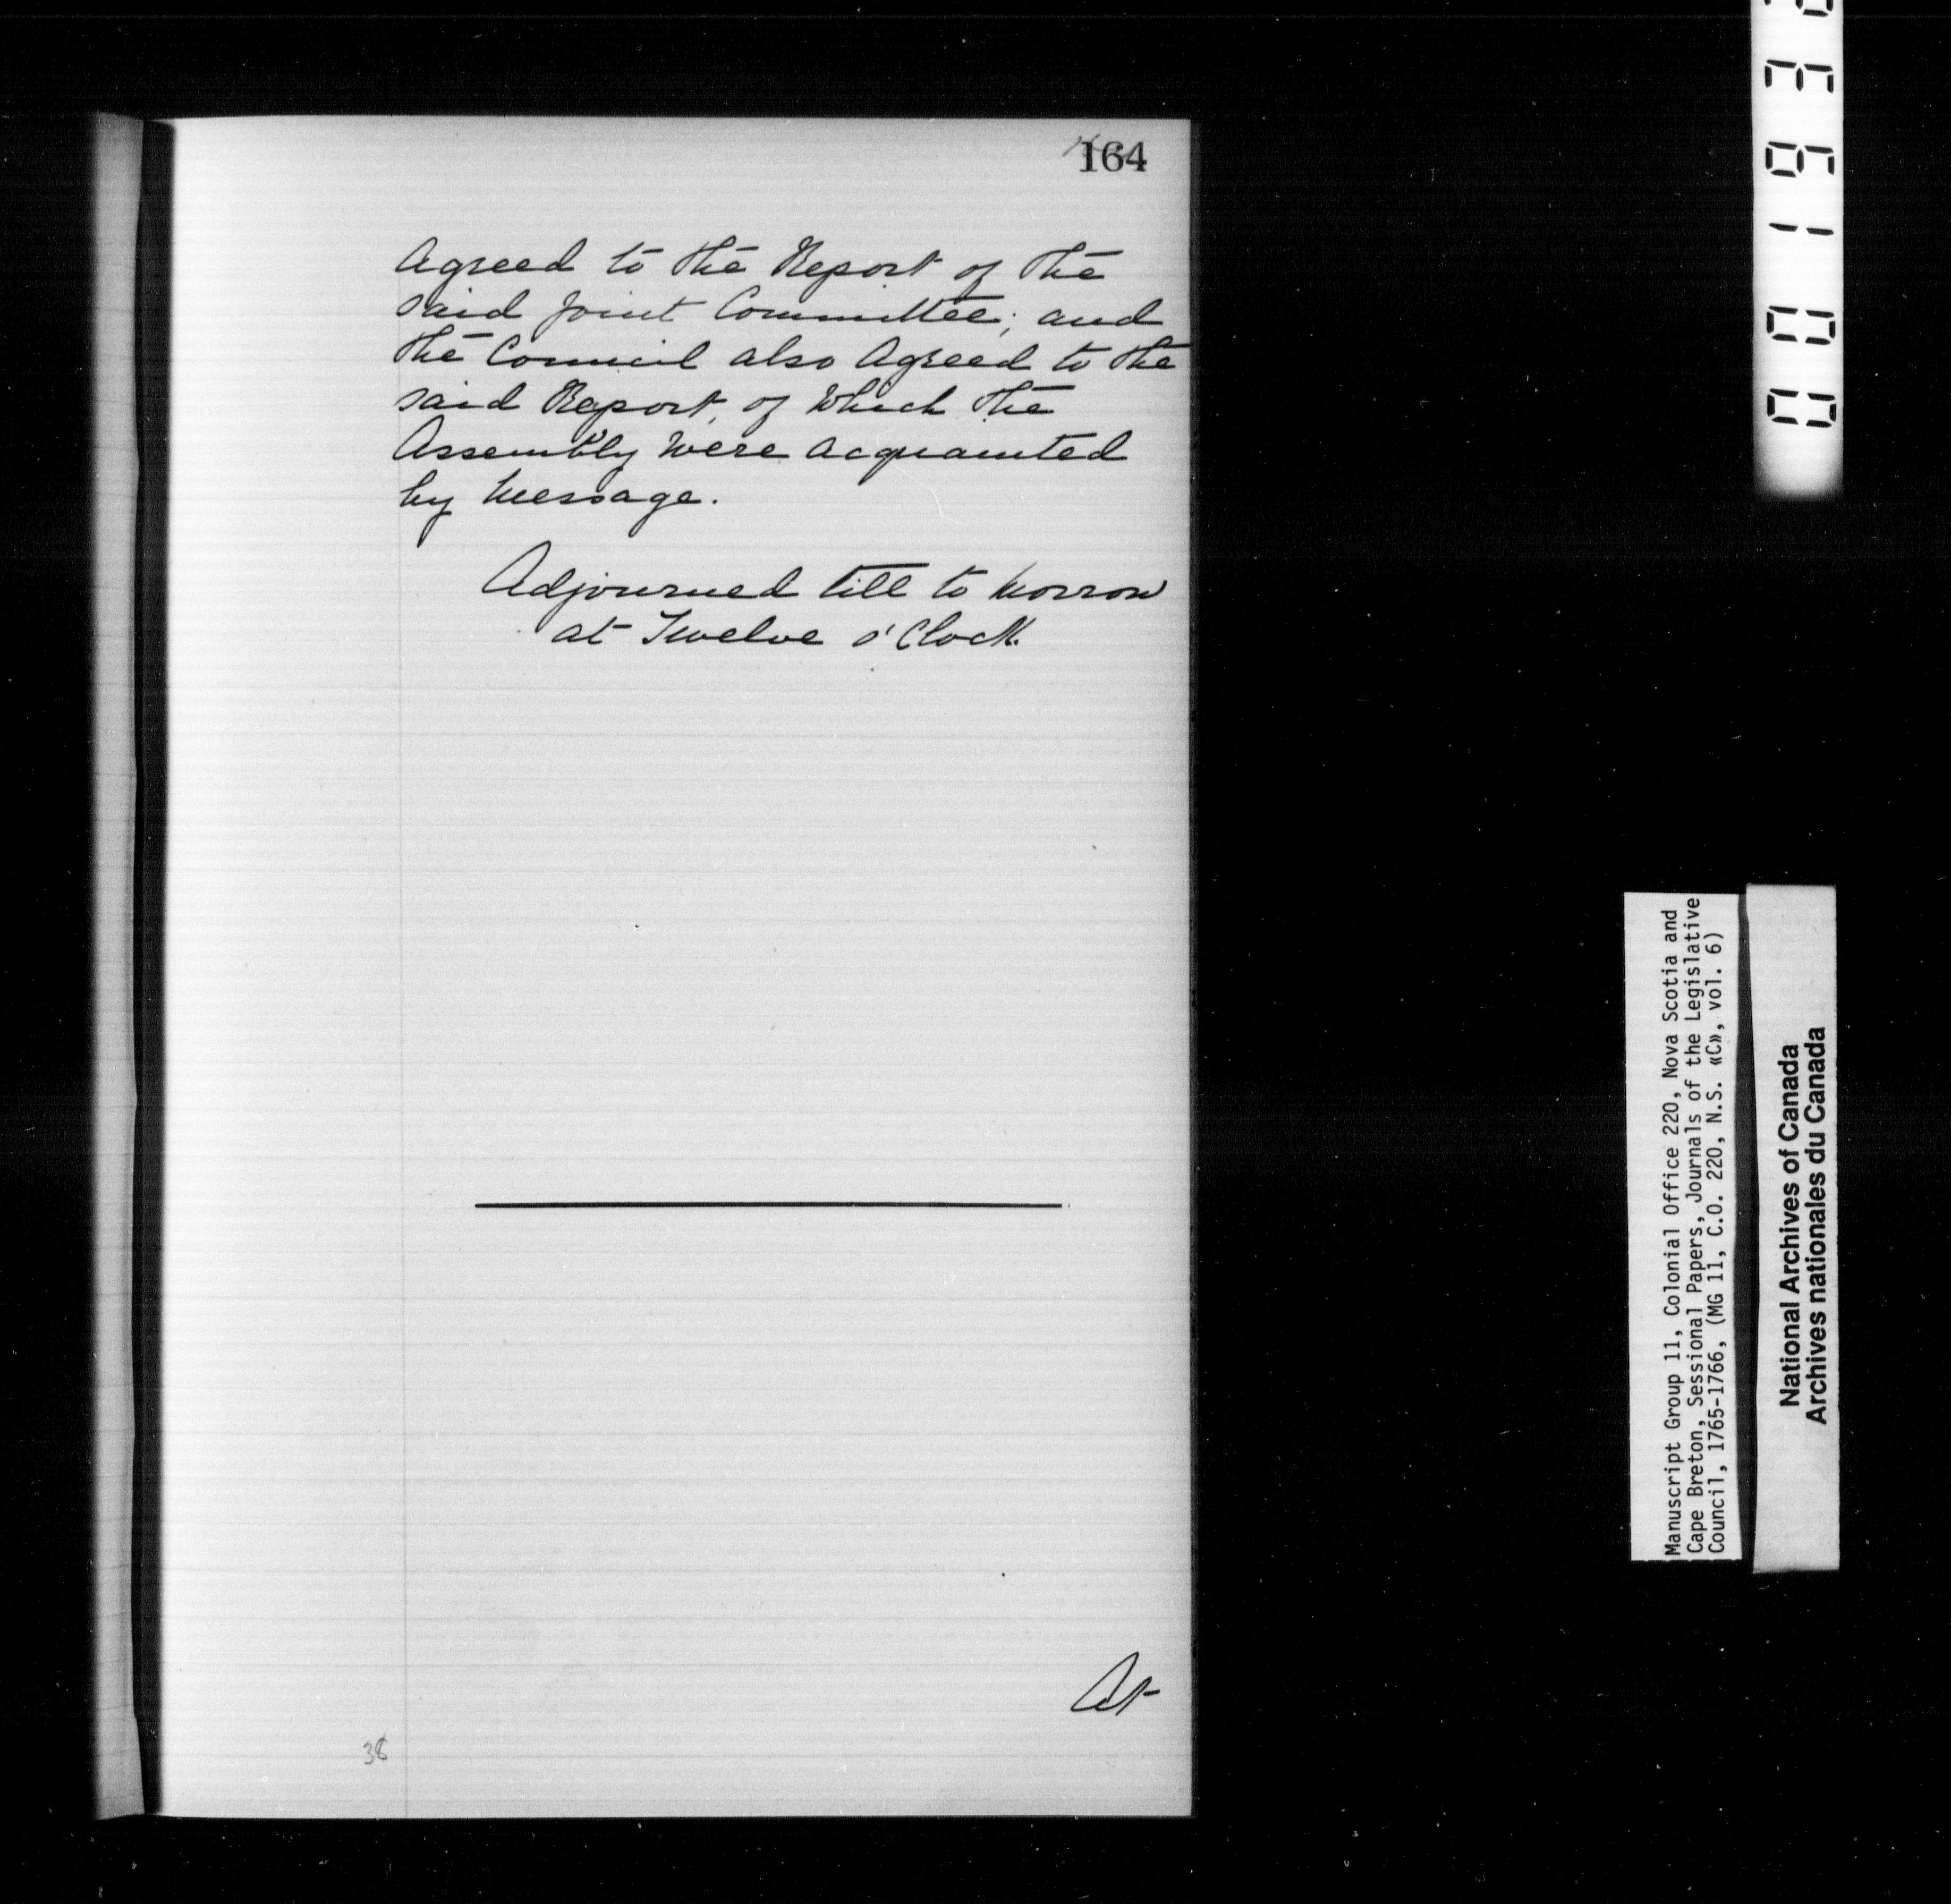 164
Agreed to the Report of the
said Joint Committee; and
the Council also Agreed to the
said Report, of Which the
Assembly Were acquainted
by Message.
Adjourned till to Morrow
at Twelve o'Clock.
At
38
001932
Manuscript Group 11, Colonial Office 220, Nova Scotia and
Cape Breton, Sessional Papers, Journals of the Legislative
Council, 1765-1766, (MG 11, C.O. 220, N.S. «C», vol. 6)
National Archives of Canada
Archives nationales du Canada